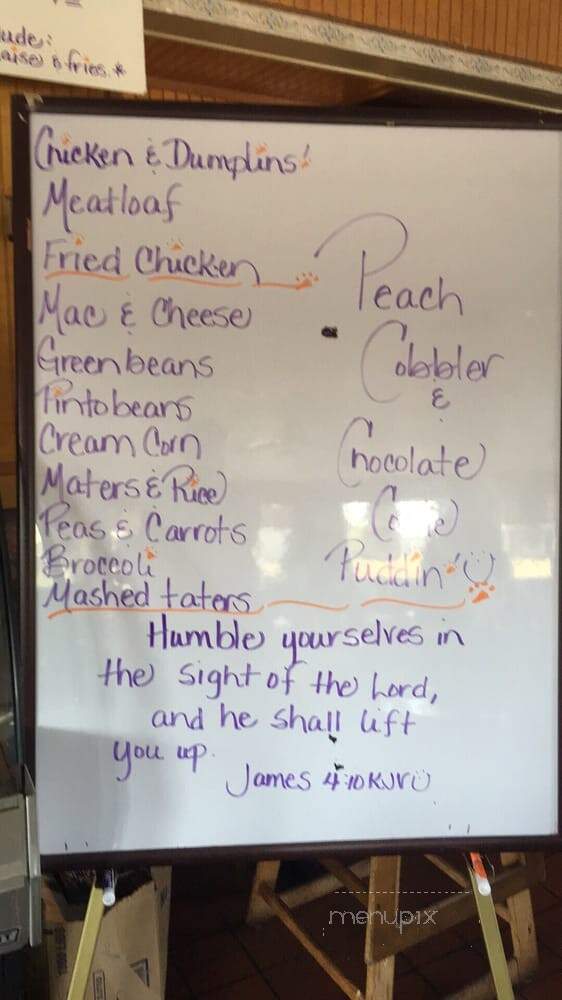 ude:
aise & fries.*
Chicken & Dumplins!
Meatloaf
Fried Chicken
Mac & Cheese
Greenbeans
Pintobeans
Cream Corn
Maters & Rice
Peas & Carrots
Broccoli
Mashed taters
Peach
Cobbler
&
Chocolate
Puddin'
Humble yourselves in
the sight of the Lord,
and he shall lift
you up.
James 4:10 KJV
menupix